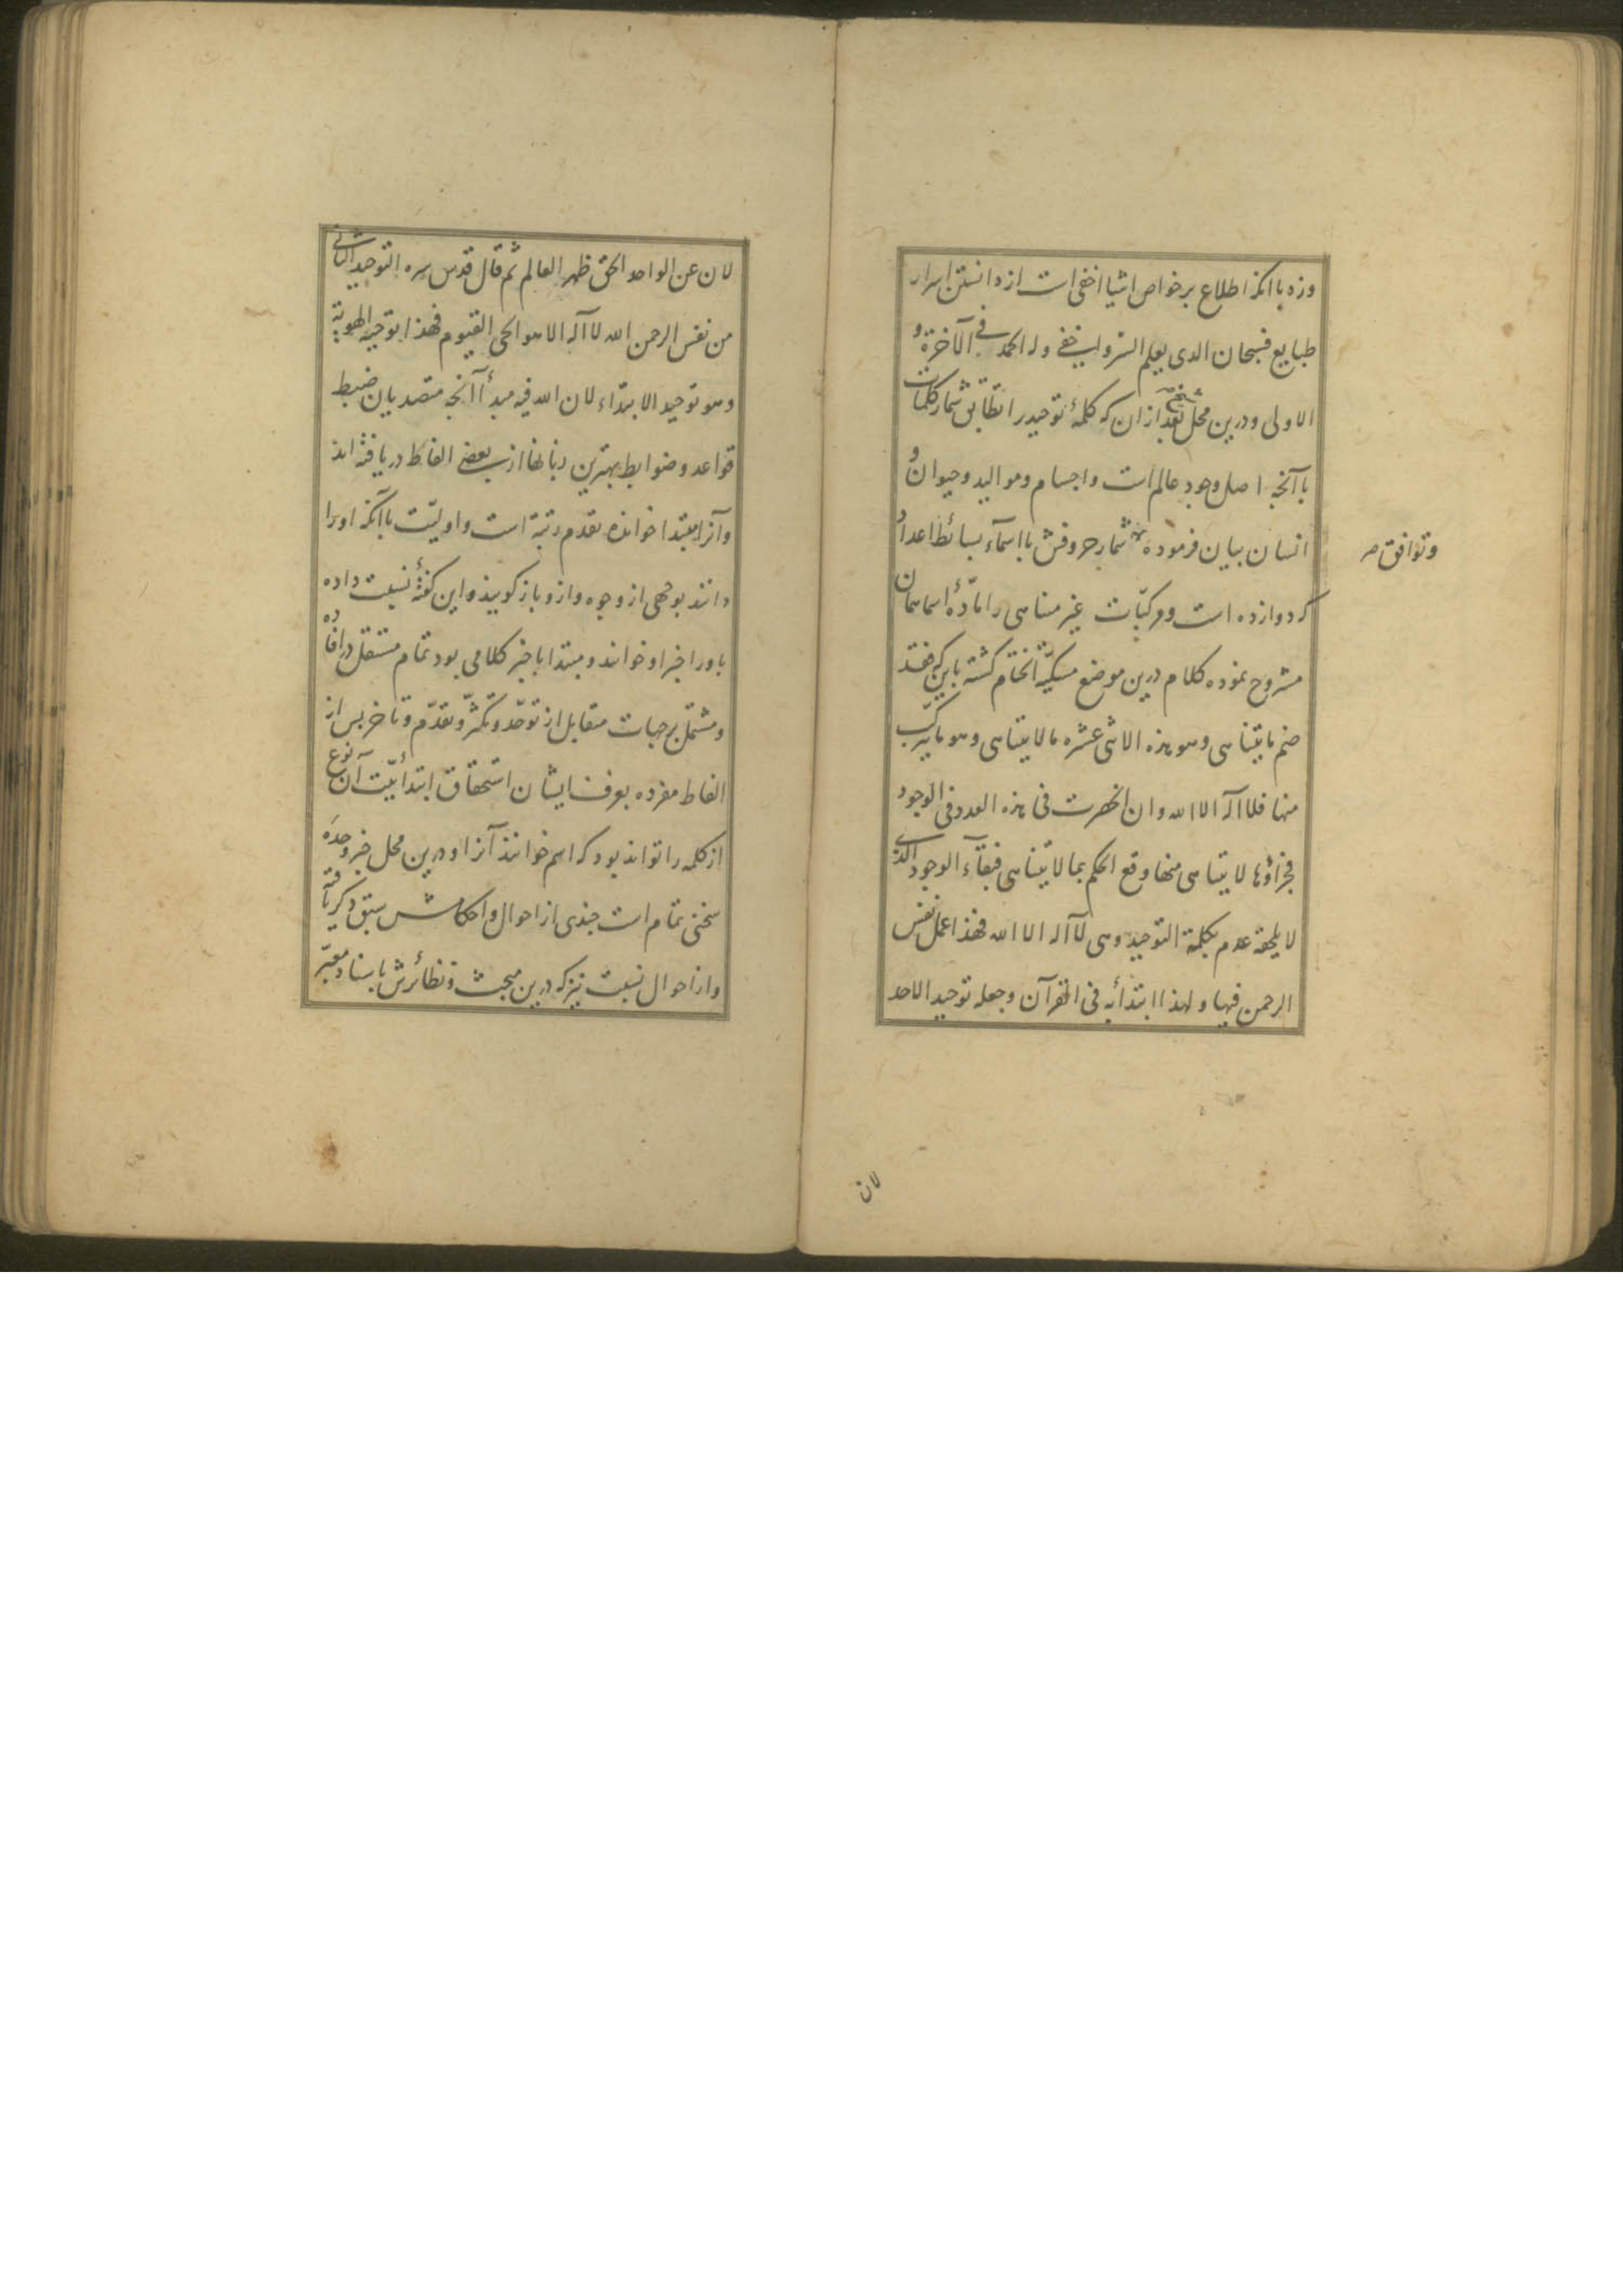 وزه باانکه اطلاع بر خواص اشیا اخفی است از دانستن اسرار
طبایع فسبحان الذی یعلم السر و الخفی وله الحمد فی الآخرة و
الاولی و درین محل بعد از ان که کلمۀ توحید را تطابق شمار کلمات
با آنچه اصل وجود عالم است و اجسام و موالید و حیوان و
انسان بیان فرموده شمار حروفش با اسمآء بسائط اعداد
وتوافق صح
که دوازده است و مرکبات غیر متناهی را مادّۀ اسما همان
مشروح نموده کلام درین موضع مسکیّة الختام گشته باین که فقد
ضم ما یتناهی وهو هذه الاثنی عشره ما لا یتناهی وهو ما یترکب
منها فلا اله الا الله وان انحصرت فی هذه العدد فی الوجود
فجزاؤها لا یتناهی منها وقع الحکم بما لا یتناهی فبقآء الوجود الذی
لا یلحقه عدم بکلمة التوحید وهی لا اله الا الله فهذا عمل نفس
الرحمن فیها و لهذا ابتدأ به فی القرآن وجعله توحید الاحد
لان
لان عن الواحد الحق ظهر العالم ثم قال قدس سره التوحید الثانی
من نفس الرحمن الله لا اله الا هو الحی القیوم فهذا توحید الهویة
وهو توحید الابتداء لان الله فیه مبدأ آنچه متصدیان ضبط
قواعد و ضوابط بهترین زبانها از بعضی الفاظ دریافته اند
و آنرا مبتدا خوانده تقدم رتبه است و اولیّت باآنکه او را
دانند بوجهی از وجوه و ازو باز گویند و این گفته نسبت داده
باو را خبر او خوانند و مبتدا با خبر کلامی بود تمام مستقل در افاده
و مشتمل بر جهات متقابل از توحّد و تکثّر و تقدّم و تاخر پس از
الفاظ مفرده بعرف ایشان استحقاق ابتدأییّت آن نوع
از کلمه را تواند بود که اسم خوانند آنرا و درین محل خبر وحده
سخنی تمام است چندی از احوال و احکامش سبق ذکر یافته
و از احوال نسبت نیز که درین مبحث و نظائرش باسناد معبّر